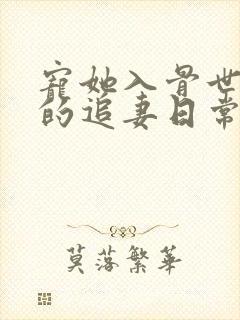 寵她入骨世
的追妻日常
莫落繁華